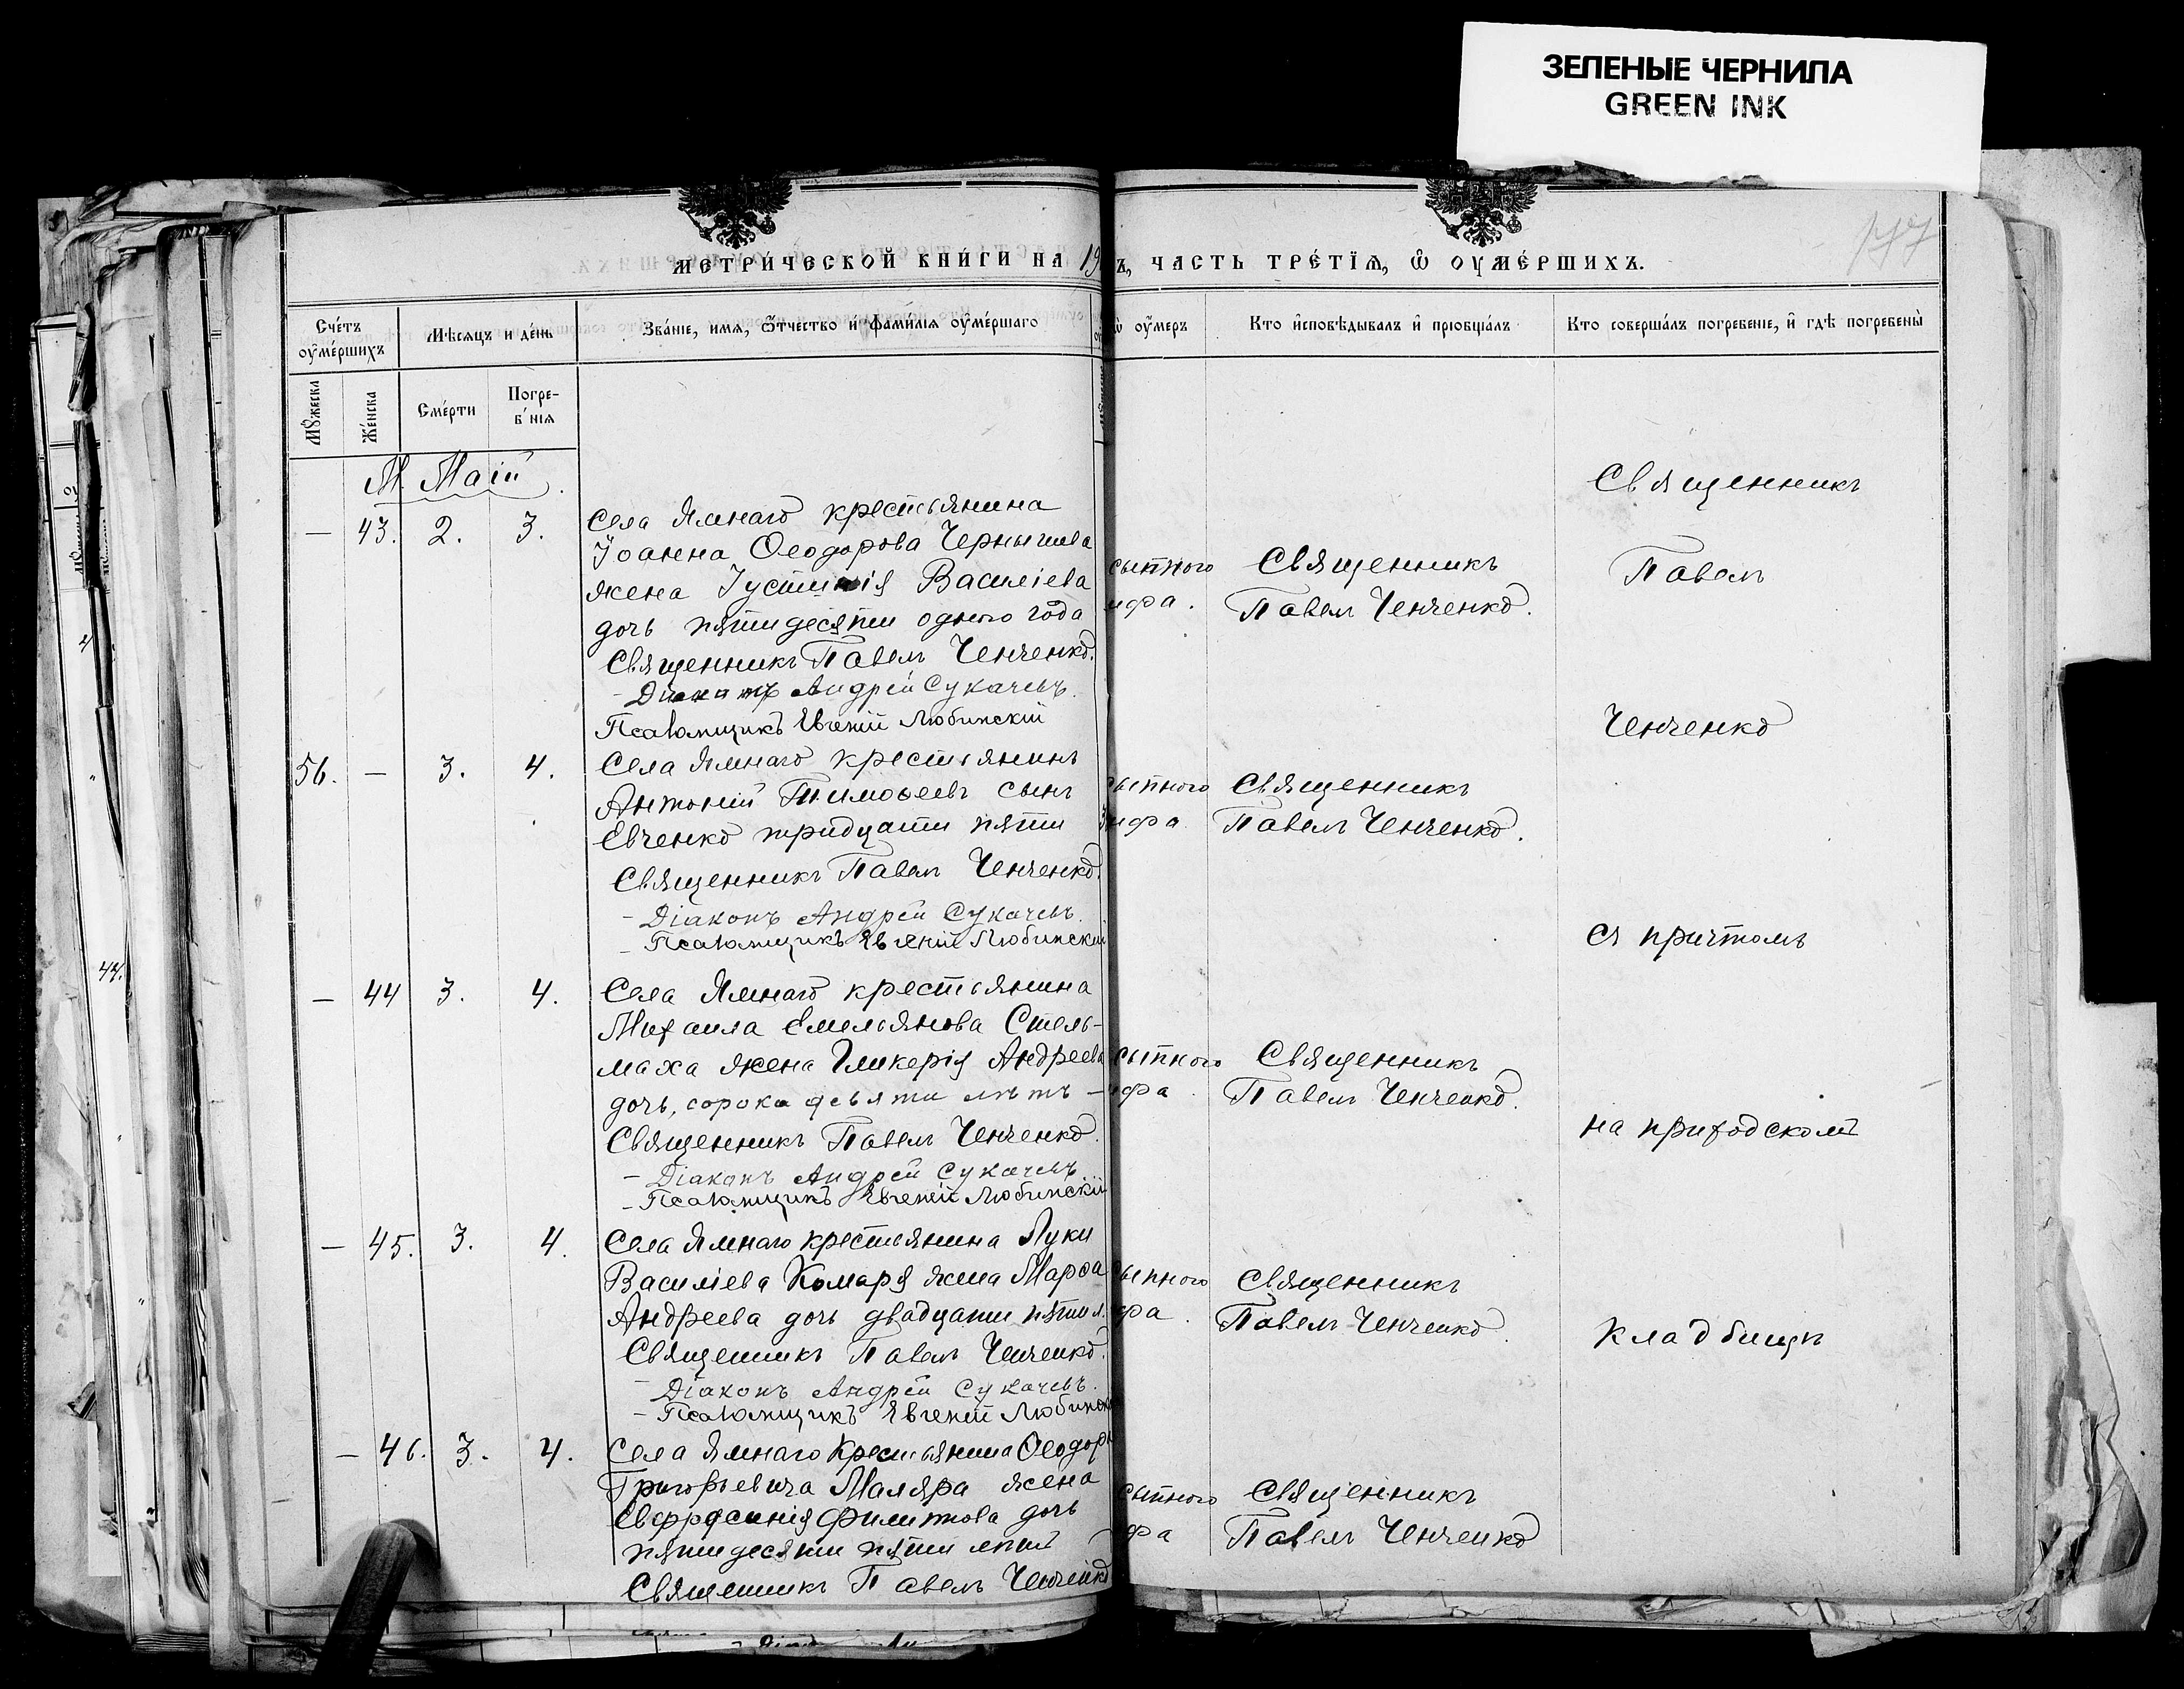 ЗЕЛЕНЫЕ ЧЕРНИЛА
GREEN INK
177
МЕТРИЧЕСКОЙ КНИГИ НА 19
Ъ, ЧАСТЬ ТРЕТІЯ, Ѿ ОУМЕРШИХЪ.
Счетъ оумершихъ
Мѣсяцъ и день
Званіе, имя, Отчество и фамилія оумершаго
оумеръ
Кто исповѣдывалъ и пріобщалъ
Кто совершалъ погребеніе, и гдѣ погребены
Мужеска
Женска
Смерти
Погре-
б'нія
М. Маій
— 43. 2. 3.
Села Ямнаго крестьянина
Іоанна Ѳеодорова Чернышева
жена Іустинія Василіева
дочь пятидесяти одного года
Священникъ Павелъ Ченченко.
– Діаконъ Андрей Сукачевъ.
Псаломщикъ Евгеній Любинскій
сыпного
ифа.
Священникъ
Павелъ Ченченко.
56. — 3. 4.
Села Ямнаго крестьянинъ
Антоній Тимоѳеевъ сынъ
Евченко тридцати пяти
Священникъ Павелъ Ченченко.
– Діаконъ Андрей Сукачевъ.
– Псаломщикъ Евгеній Любинскій
сыпного
ифа
Священникъ
Павелъ Ченченко.
— 44 3. 4.
Села Ямнаго крестьянина
Михаила Емельянова Стель-
маха жена Гликерія Андреева
дочь, сорока девяти лѣтъ –
Священникъ Павелъ Ченченко.
– Діаконъ Андрей Сукачевъ
– Псаломщикъ Евгеній Любинскій
сыпного
ифа.
Священникъ
Павелъ Ченченко.
— 45. 3. 4.
Села Ямнаго крестьянина Луки
Василіева Комаря жена Марѳа
Андреева дочь двадцати пяти л.
Священникъ Павелъ Ченченко.
– Діаконъ Андрей Сукачевъ.
– Псаломщикъ Евгеній Любинск
ыпного
фа.
Священникъ
Павелъ Ченченко.
— 46. 3. 4.
Села Ямнаго крестьянина Ѳеодора
Григорьевича Маляра жена
Евфросинія Филиппова дочь
пятидесяти пяти лѣтъ
Священникъ Павелъ Ченченко
сыпного
фа
Священникъ
Павелъ Ченченко
Священникъ
Павелъ
Ченченко
съ причтомъ
на приходскомъ
кладбищѣ